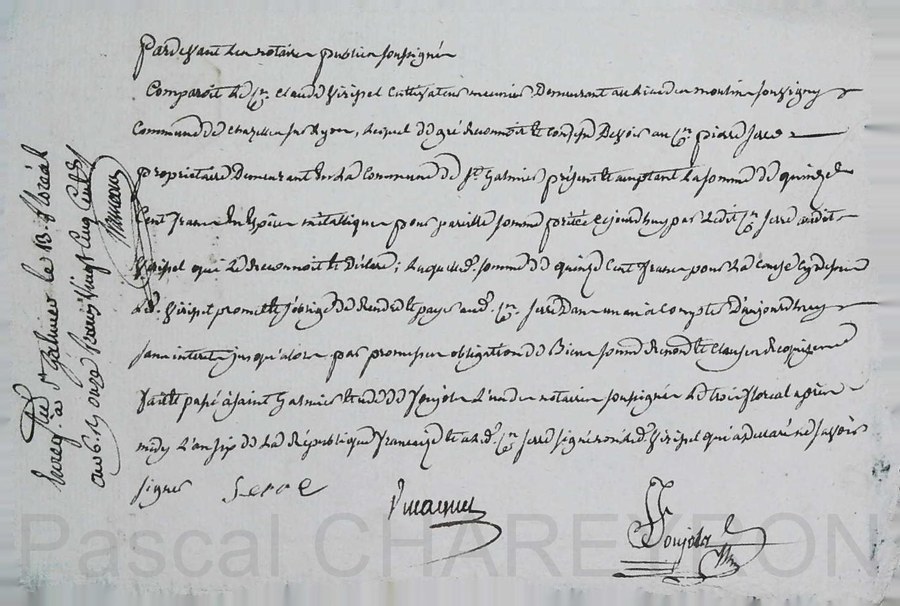 Pardevant les notaires publics soussignés
Comparoit le Cn. Claude Virissel Cultivateur meunier Demeurant au lieu du moulin
Commune de Chazelles sur Lyon, lequel de gré reconnoit et confesse Devoir au Cn. pierre Serre
propriétaire Demeurant en la Commune de St. Galmier présent et acceptant la somme de quinze
Cent francs En Espèce métallique pour pareille somme prêtée cejourd'huy par ledit Cn. Serre audit
Virissel que le reconnoit et déclare; laquelle somme de quinze Cent francs pour la cause cy dessus
led. Virissel promet et s'oblige de rendre et payer aud. Cn. Serre Dans un an à Compter D'aujourd'huy
sans interets jusqu'alors par promesses obligations de Biens soumis. renonc. et clauses requises
fait et passé à Saint Galmier Etude de Poujola l'un des notaires soussignés le trois floréal après
midy l'an six de la République française et a led. Cn. Serre signé non led. Virissel qui a declaré ne savoir
signer Serre
Poujola
Enregistré à St. Galmier le 13 floréal
Pascal CHAREYRON